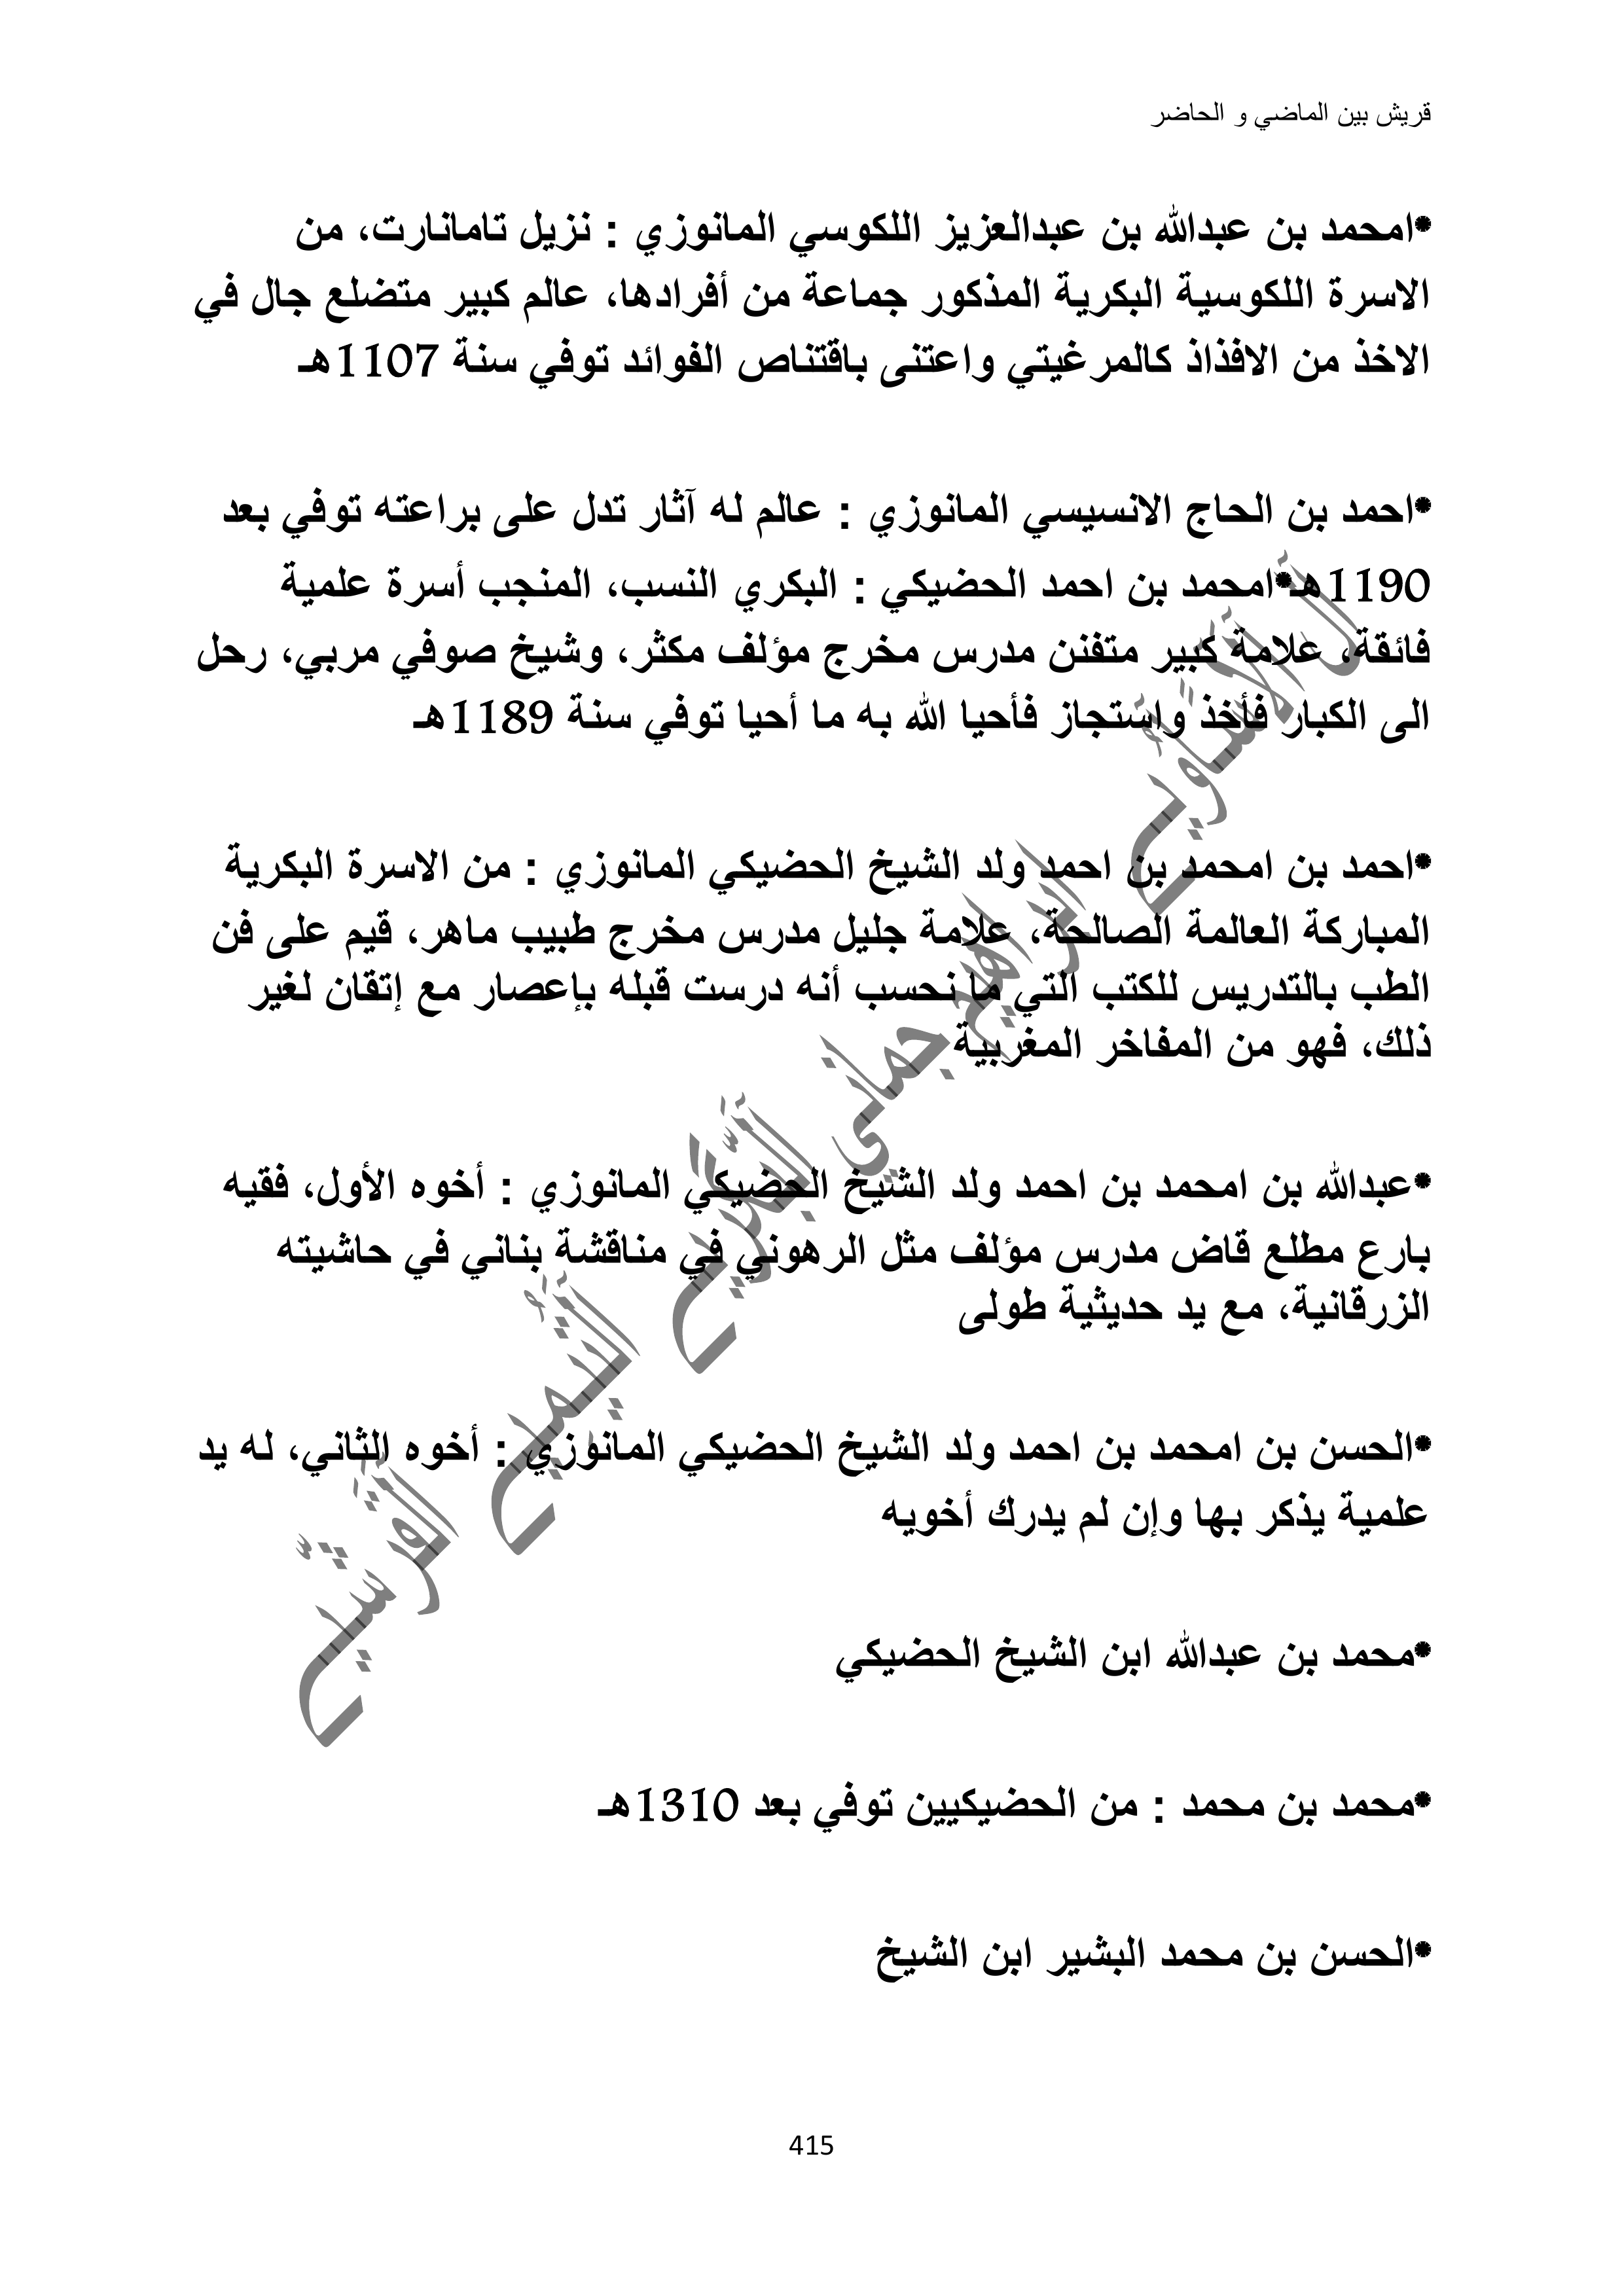 قريش بين الماضي و الحاضر
*امحمد بن عبدالله بن عبدالعزيز اللكوسي المانوزي : نزيل تامانارت، من
الاسرة اللكوسية البكرية المذكور جماعة من أفرادها، عالم كبير متضلع جال في
الاخذ من الافذاذ كالمرغيتي واعتنى باقتناص الفوائد توفي سنة 1107هـ
*احمد بن الحاج الانسيسي المانوزي : عالم له آثار تدل على براعته توفي بعد
1190هـ*امحمد بن احمد الحضيكي : البكري النسب، المنجب أسرة علمية
فائقة، علامة كبير متفنن مدرس مخرج مؤلف مكثر، وشيخ صوفي مربي، رحل
الى الكبار فأخذ واستجاز فأحيا الله به ما أحيا توفي سنة 1189هـ
*احمد بن امحمد بن احمد ولد الشيخ الحضيكي المانوزي : من الاسرة البكرية
المباركة العالمة الصالحة، علامة جليل مدرس مخرج طبيب ماهر، قيم على فن
الطب بالتدريس للكتب التي ما نحسب أنه درست قبله بإعصار مع إتقان لغير
ذلك، فهو من المفاخر المغربية
*عبدالله بن امحمد بن احمد ولد الشيخ الحضيكي المانوزي : أخوه الأول، فقيه
بارع مطلع قاض مدرس مؤلف مثل الرهوني في مناقشة بناني في حاشيته
الزرقانية، مع يد حديثية طولى
*الحسن بن امحمد بن احمد ولد الشيخ الحضيكي المانوزي : أخوه الثاني، له يد
علمية يذكر بها وإن لم يدرك أخويه
*محمد بن عبدالله ابن الشيخ الحضيكي
*محمد بن محمد : من الحضيكيين توفي بعد 1310هـ
*الحسن بن محمد البشير ابن الشيخ
415